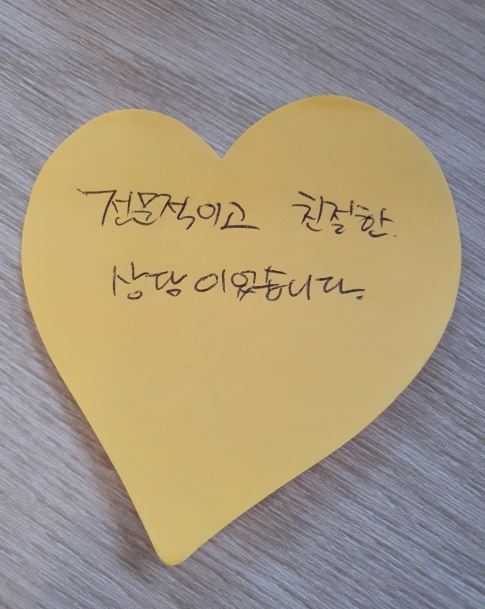 전문적이고 친절한.
상담이었습니다.